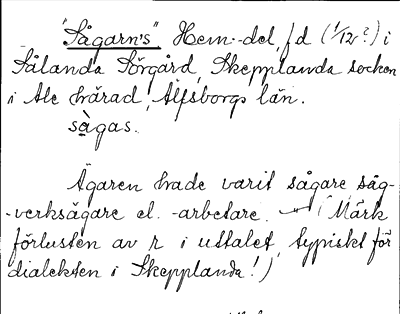 "Sågarn's" Hem.-del, fd (1/12?) i
Sålanda Sörgård, Skepplanda socken
i Ale härad, Älfsborgs län.
sågas.
Ägaren hade varit sågare, såg-
-verksägare el. -arbetare. — (Märk
förlusten av r i uttalet, typiskt för
dialekten i Skepplanda!)